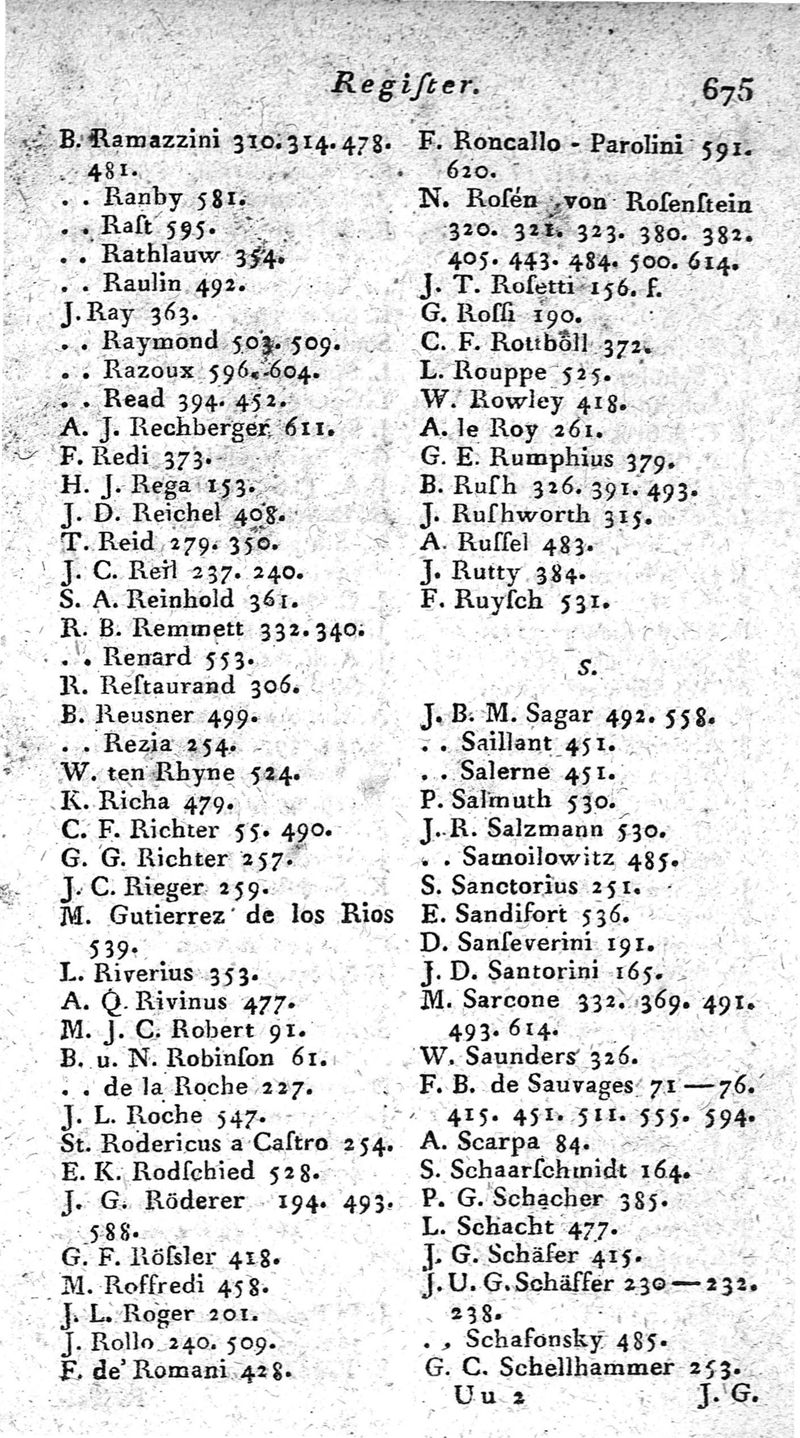 Regiſter. 675
B. Ramazzini 310. 314. 478.
481.
. . Ranby 581.
. . Raſt 595.
. . Rathlauw 354.
. . Raulin 492.
J. Ray 363.
. . Raymond 503. 509.
. . Razoux 596. 604.
. . Read 394. 452.
A. J. Rechberger 611.
F. Redi 373.
H. J. Rega 153.
J. D. Reichel 408.
T. Reid 279. 350.
J. C. Reil 237. 240.
S. A. Reinhold 361.
R. B. Remmett 332. 340.
. . Renard 553.
R. Reſtaurand 306.
B. Reusner 499.
. . Rezia 254.
W. ten Rhyne 524.
K. Richa 479.
C. F. Richter 55. 490.
G. G. Richter 257.
J. C. Rieger 259.
M. Gutierrez de los Rios
539.
L. Riverius 353.
A. Q. Rivinus 477.
M. J. C. Robert 91.
B. u. N. Robinſon 61.
. . de la Roche 227.
J. L. Roche 547.
St. Rodericus a Caſtro 254.
E. K. Rodſchied 528.
J. G. Röderer 194. 493.
588.
G. F. Röſsler 418.
M. Roffredi 458.
J. L. Roger 201.
J. Rollo 240. 509.
F. de' Romani 428.
F. Roncallo - Parolini 591.
620.
N. Roſén von Roſenſtein
320. 321. 323. 380. 382.
405. 443. 484. 500. 614.
J. T. Roſetti 156. f.
G. Roſſi 190.
C. F. Rottböll 372.
L. Rouppe 525.
W. Rowley 418.
A. le Roy 261.
G. E. Rumphius 379.
B. Ruſh 326. 391. 493.
J. Ruſhworth 315.
A. Ruſſel 483.
J. Rutty 384.
F. Ruyſch 531.
S.
J. B. M. Sagar 492. 558.
. . Saillant 451.
. . Salerne 451.
P. Salmuth 530.
J. R. Salzmann 530.
. . Samoilowitz 485.
S. Sanctorius 251.
E. Sandifort 536.
D. Sanſeverini 191.
J. D. Santorini 165.
M. Sarcone 332. 369. 491.
493. 614.
W. Saunders 326.
F. B. de Sauvages 71—76.
415. 451. 511. 555. 594.
A. Scarpa 84.
S. Schaarſchmidt 164.
P. G. Schacher 385.
L. Schacht 477.
J. G. Schäfer 415.
J. U. G. Schäffer 230—232.
238.
. . Schafonsky 485.
G. C. Schellhammer 253.
Uu 2 J. G.